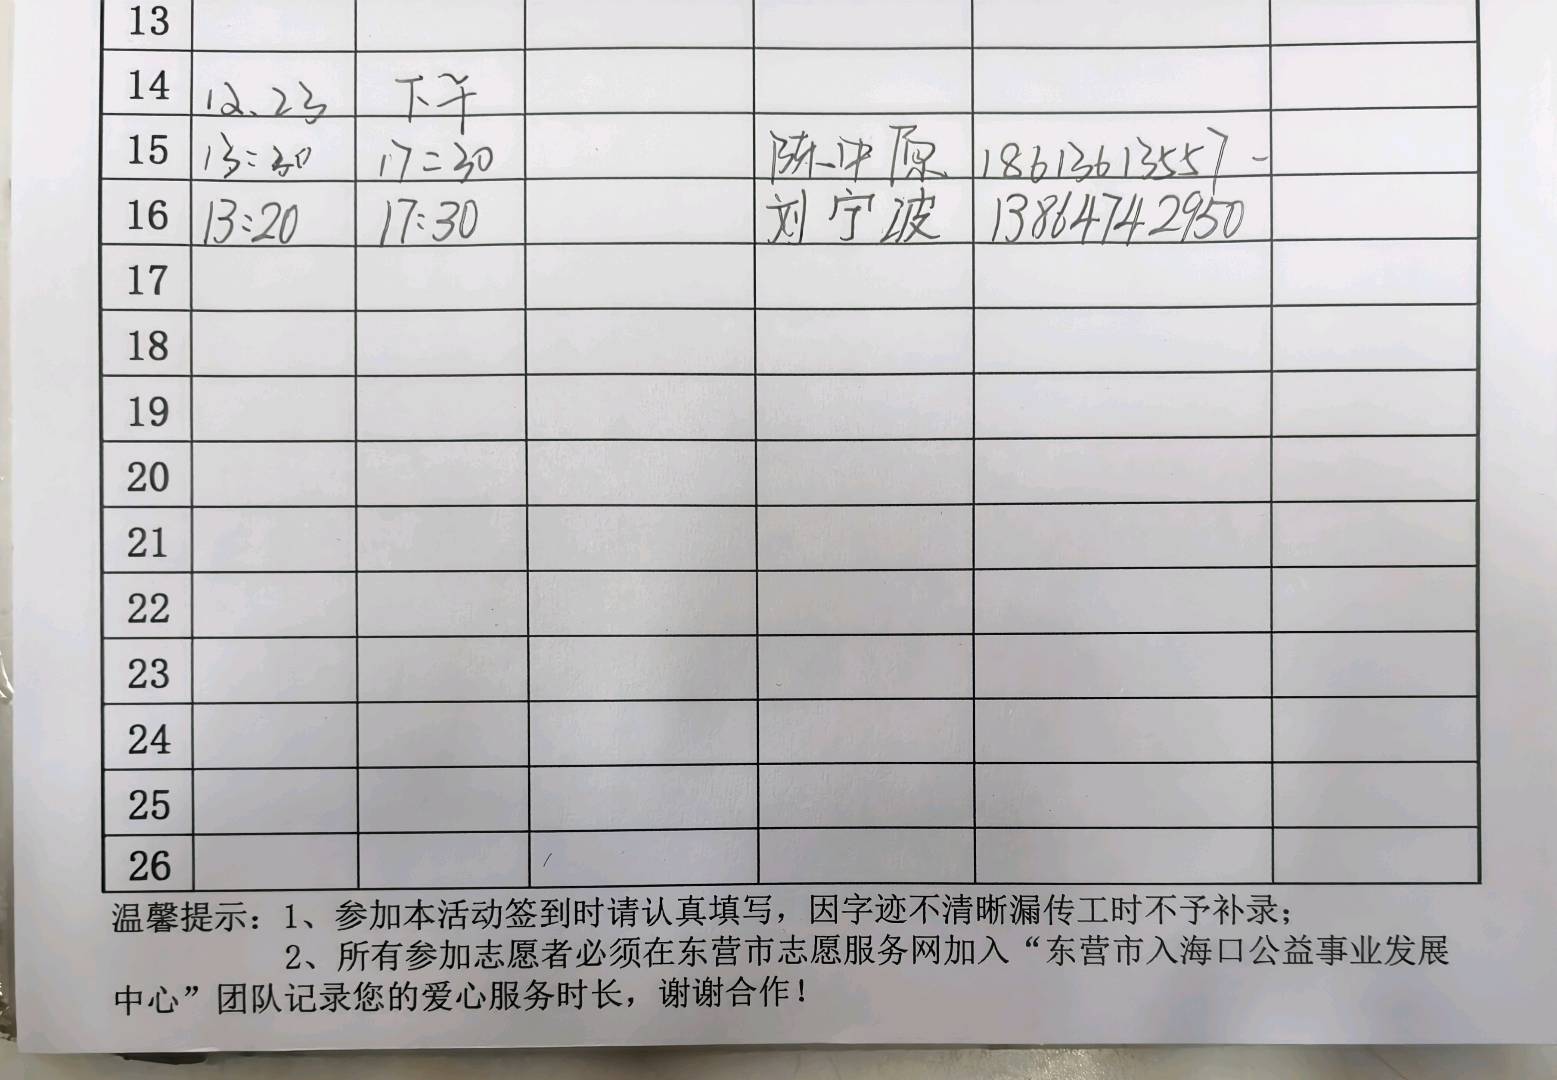 13
14 12.23 下午
15 13:30 17:30 陈中原 18613613557
16 13:20 17:30 刘宁波 13864742950
17
18
19
20
21
22
23
24
25
26
温馨提示：1、参加本活动签到时请认真填写，因字迹不清晰漏传工时不予补录；
2、所有参加志愿者必须在东营市志愿服务网加入“东营市入海口公益事业发展
中心”团队记录您的爱心服务时长，谢谢合作！